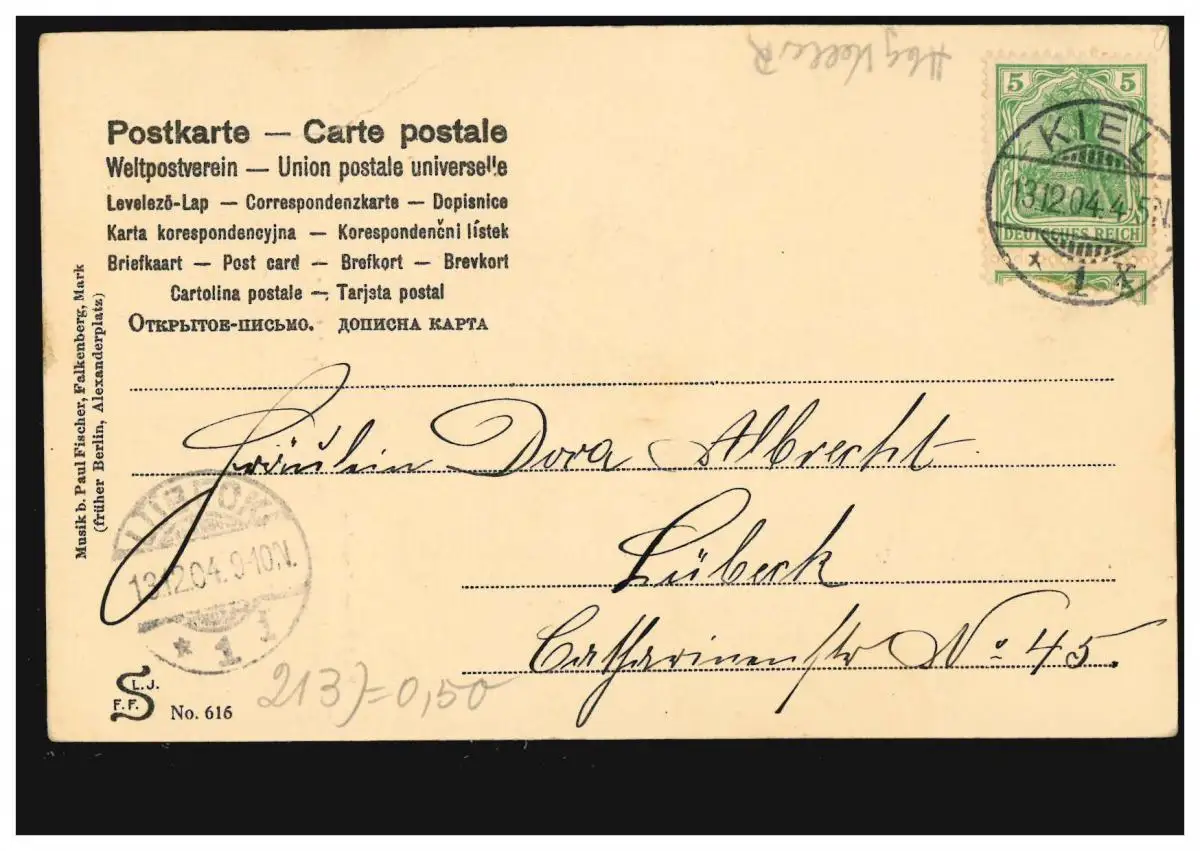 Postkarte — Carte postale
Weltpostverein — Union postale universelle
Levelező-Lap — Correspondenzkarte — Dopisnice
Karta korespondencyjna — Korespondenční lístek
Briefkaart — Post card — Brefkort — Brevkort
Cartolina postale — Tarjeta postal
Открытое-письмо. дописна карта
5 5
DEUTSCHES REICH
KIEL
13.12.04.4-5N.
* 1 x
Musik b. Paul Fischer, Falkenberg, Mark
(früher Berlin, Alexanderplatz)
Fräulein Dora Albrecht
Lübeck
Catharinenstr No. 45.
LÜBECK
13.12.04.9-10N.
* 1
L.J.
F.F.
No. 616
213)=0,50